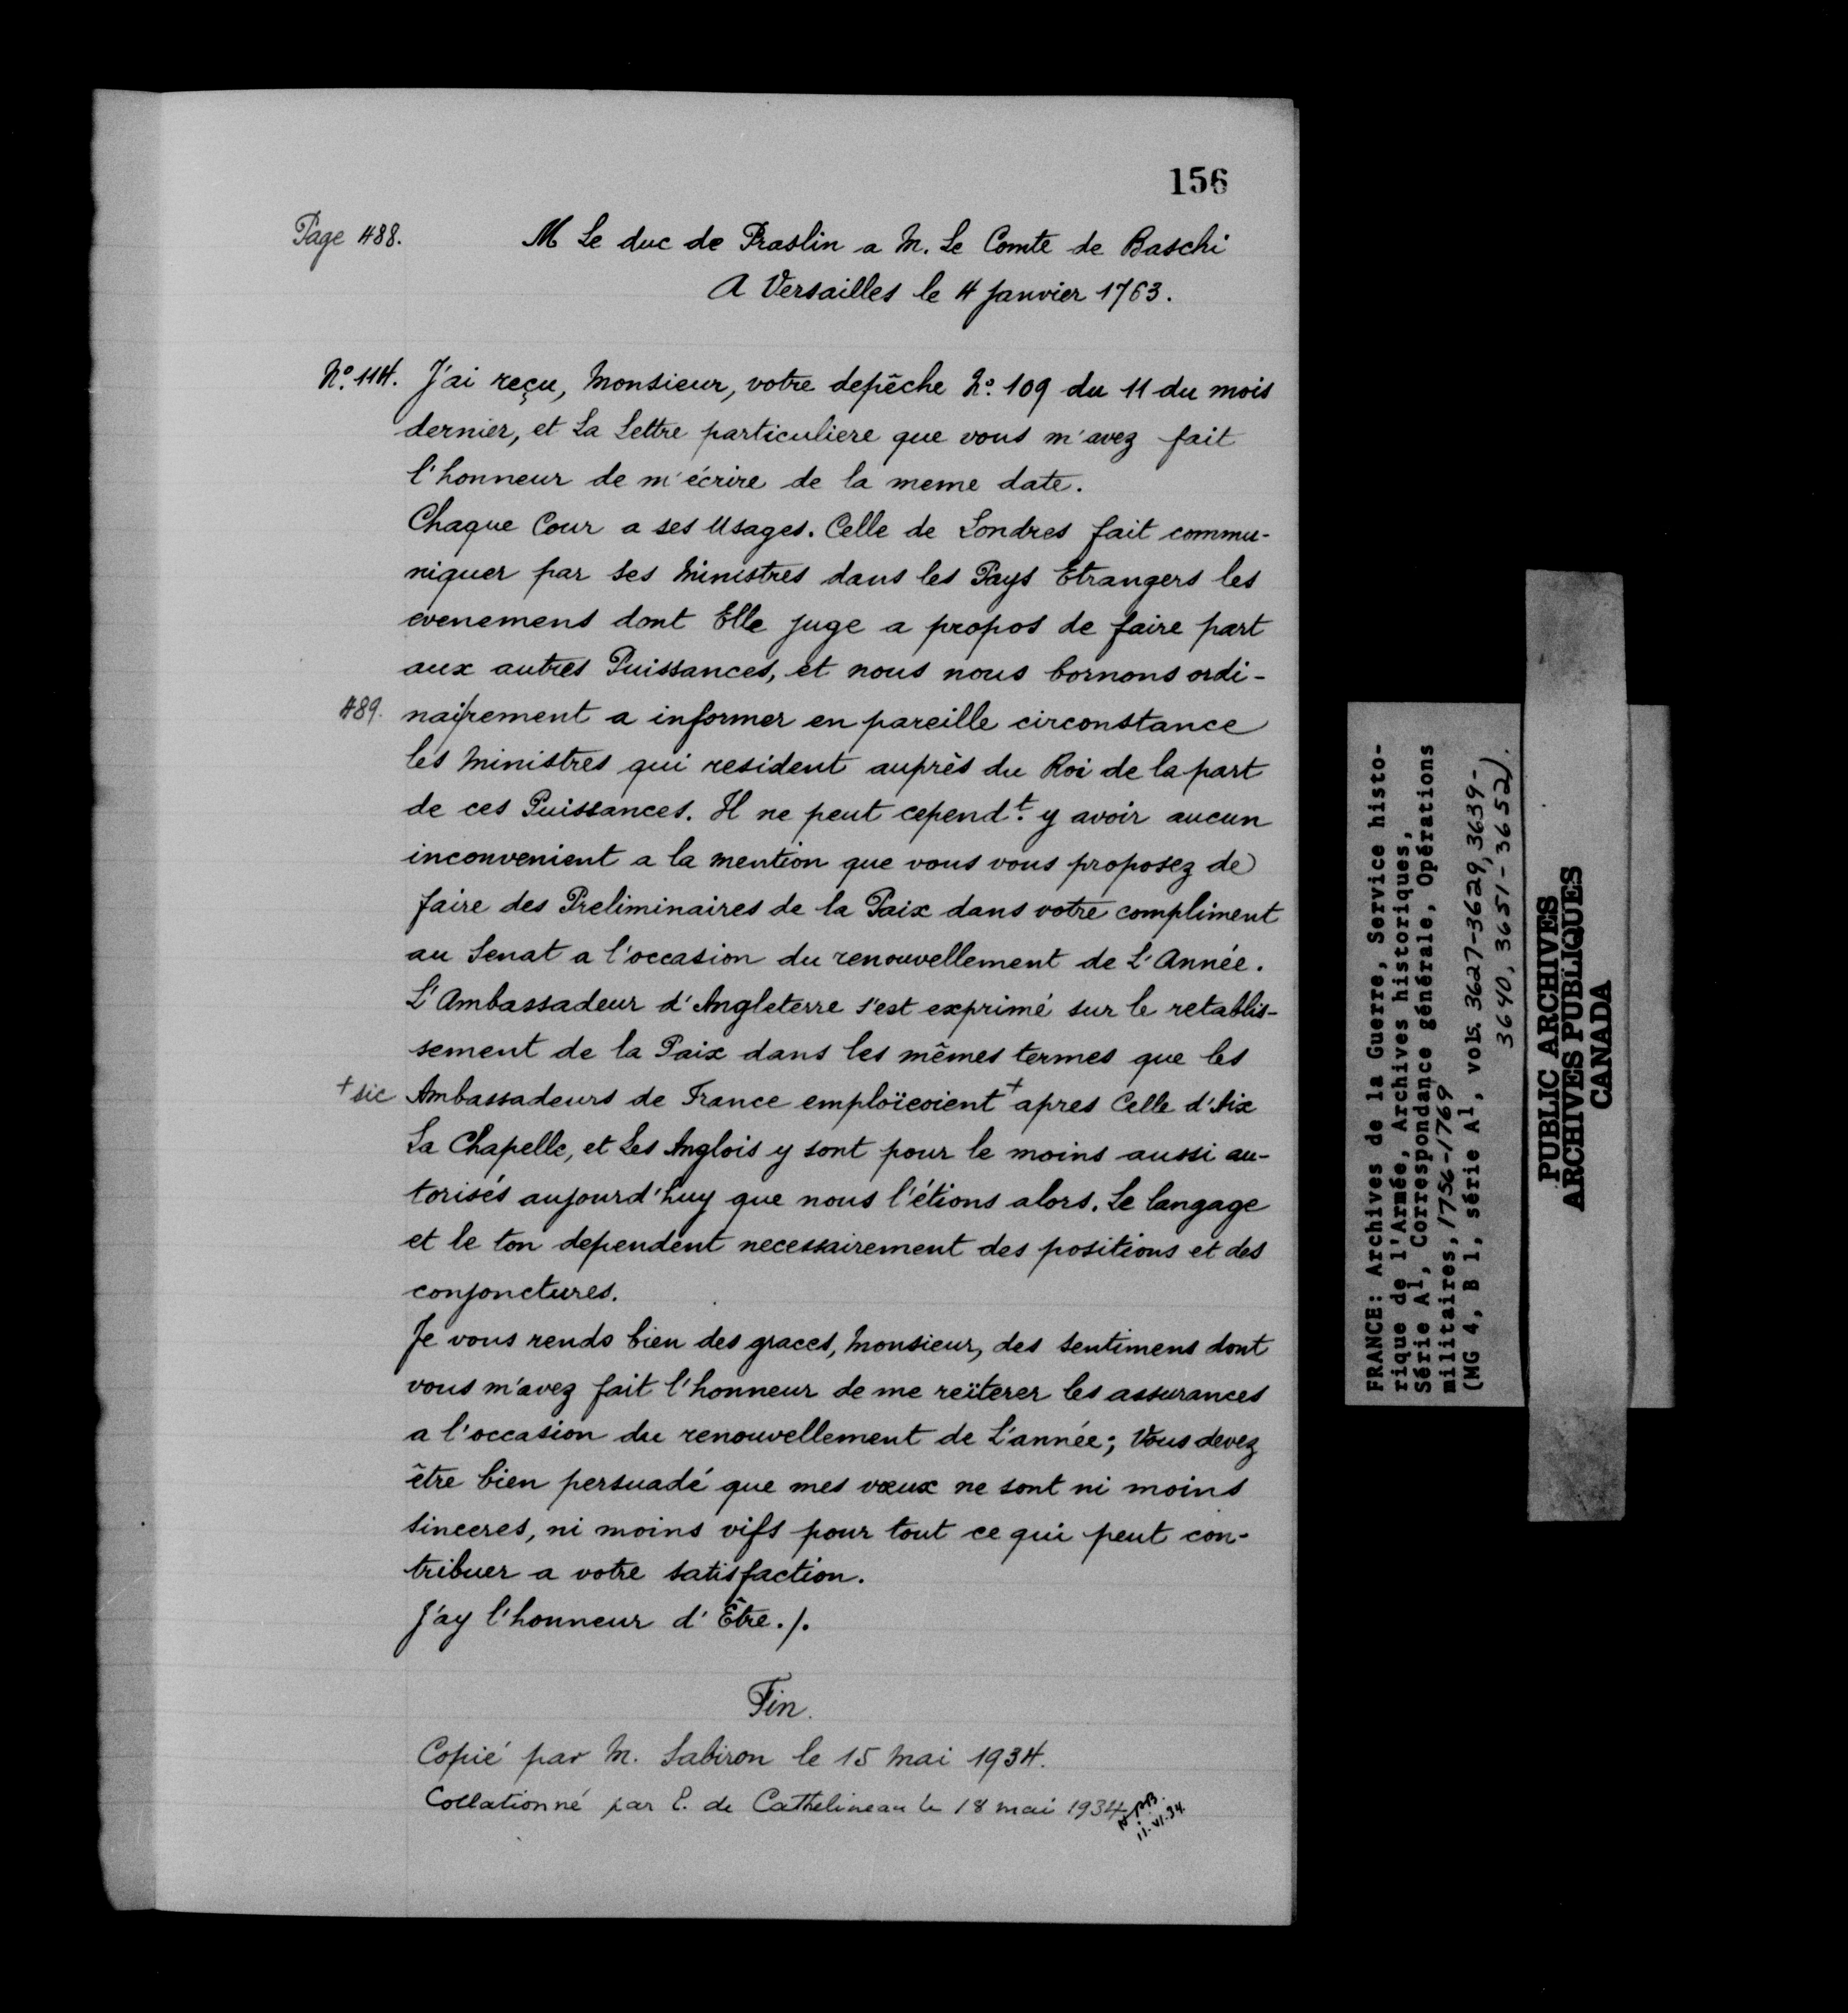 156
Page 488.
M Le duc de Praslin a M. Le Comte de Baschi
A Versailles le 4 Janvier 1763.
N.º 114. J'ai reçu, Monsieur, votre depêche N.º 109 du 11 du mois
dernier, et La Lettre particuliere que vous m'avez fait
l'honneur de m'écrire de la meme date.
Chaque Cour a ses Usages. Celle de Londres fait commu-
niquer par ses Ministres dans les Pays Etrangers les
evenemens dont Elle juge a propos de faire part
aux autres Puissances, et nous nous bornons ordi-
489. nai/rement a informer en pareille circonstance
les Ministres qui resident auprès du Roi de la part
de ces Puissances. Il ne peut cepend.t y avoir aucun
inconvenient a la mention que vous vous proposez de
faire des Preliminaires de la Paix dans votre compliment
au Senat a l'occasion du renouvellement de L'Année.
L'Ambassadeur d'Angleterre s'est exprimé sur le retablis-
sement de la Paix dans les mêmes termes que les
+ sic Ambassadeurs de France emploïcoient + apres Celle d'Aix
La Chapelle, et Les Anglois y sont pour le moins aussi au-
torisés aujourd'huy que nous l'étions alors. Le langage
et le ton dependent necessairement des positions et des
conjonctures.
Je vous rends bien des graces, Monsieur, des sentimens dont
vous m'avez fait l'honneur de me reïterer les assurances
a l'occasion du renouvellement de L'année; Vous devez
être bien persuadé que mes vœux ne sont ni moins
sinceres, ni moins vifs pour tout ce qui peut con-
tribuer a votre satisfaction.
J'ay l'honneur d'Être./.
Fin.
Copié par M. Sabiron le 15 Mai 1934.
Collationné par E. de Cathelineau le 18 mai 1934
11.VI.34.
FRANCE: Archives de la Guerre, Service histo-
rique de l'Armée, Archives historiques,
Série A1, Correspondance générale, Opérations
militaires, 1756-1769
(MG 4, B 1, série A1, vols. 3627-3629, 3639-
3640, 3651-3652).
PUBLIC ARCHIVES
ARCHIVES PUBLIQUES
CANADA